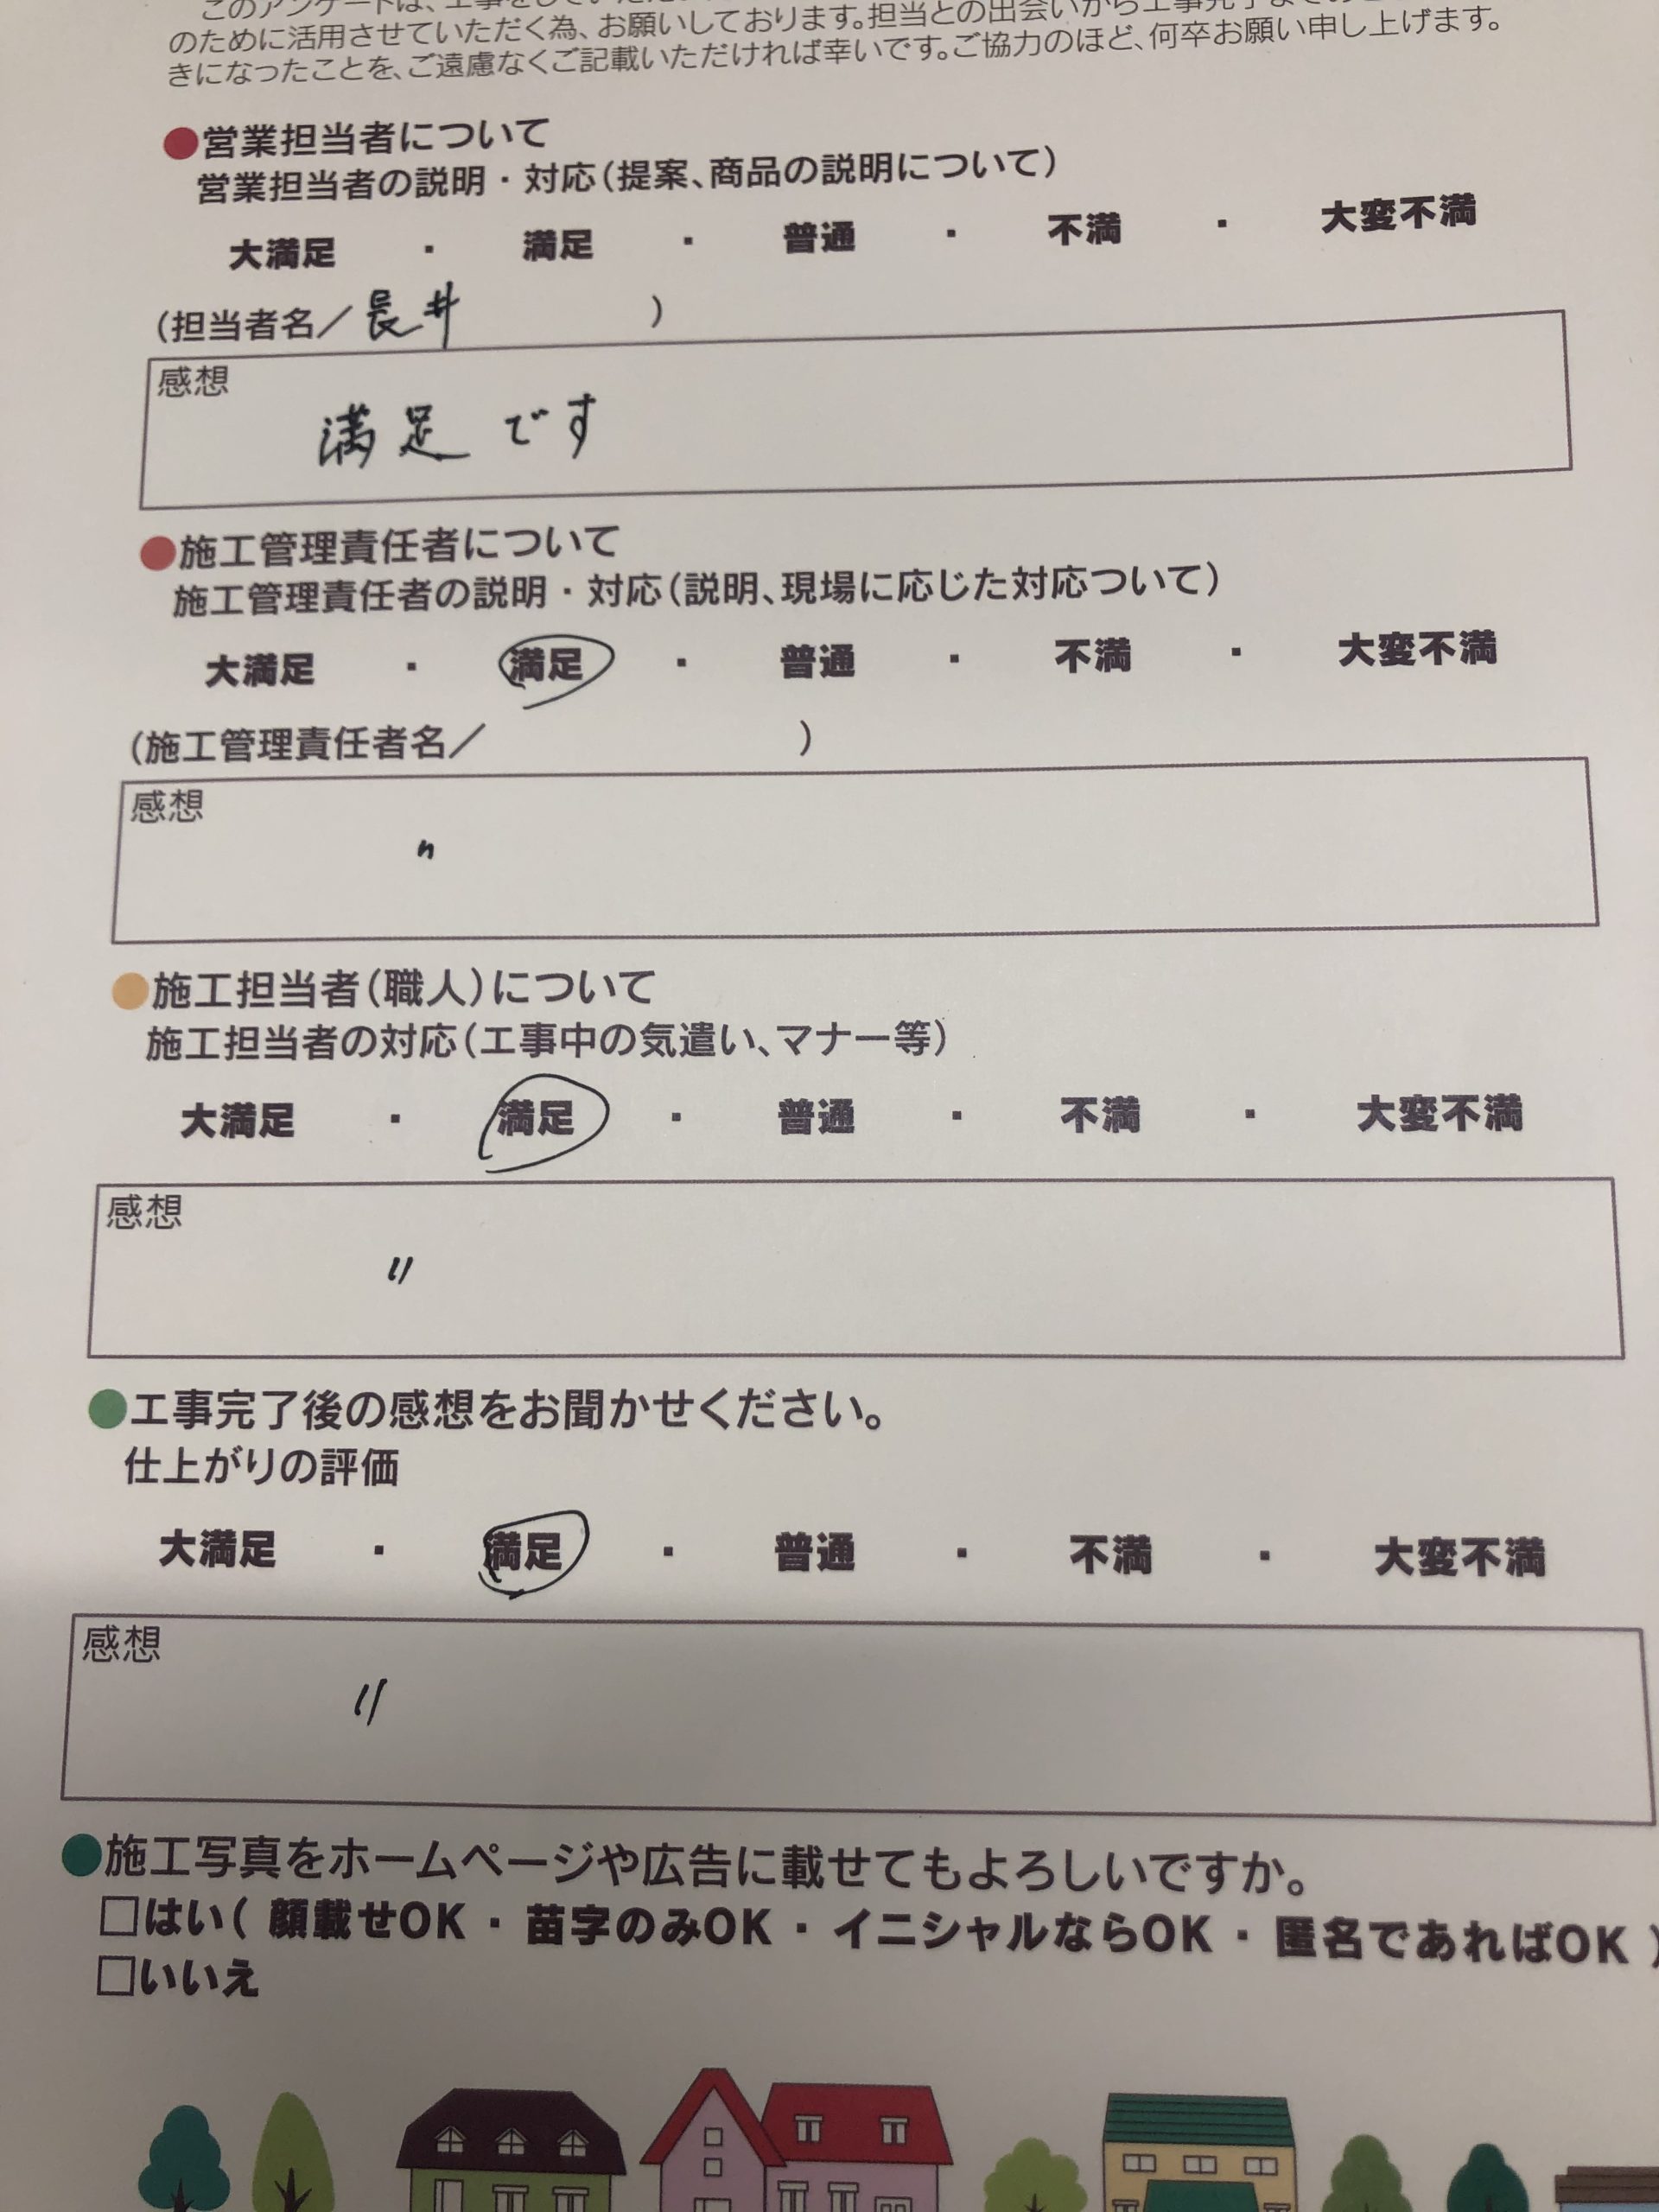 このアンケートは、工事をしていただ
のために活用させていただく為、お願いしております。担当との出会いから工事完了までの
きになったことを、ご遠慮なくご記載いただければ幸いです。ご協力のほど、何卒お願い申し上げます。
●営業担当者について
営業担当者の説明・対応(提案、商品の説明について)
大満足 ・ 満足 ・ 普通 ・ 不満 ・ 大変不満
(担当者名／長井 )
感想
満足です
●施工管理責任者について
施工管理責任者の説明・対応(説明、現場に応じた対応ついて)
大満足 ・ 満足 ・ 普通 ・ 不満 ・ 大変不満
(施工管理責任者名／ )
感想
〃
●施工担当者(職人)について
施工担当者の対応(工事中の気遣い、マナー等)
大満足 ・ 満足 ・ 普通 ・ 不満 ・ 大変不満
感想
〃
●工事完了後の感想をお聞かせください。
仕上がりの評価
大満足 ・ 満足 ・ 普通 ・ 不満 ・ 大変不満
感想
〃
●施工写真をホームページや広告に載せてもよろしいですか。
□はい( 顔載せOK ・ 苗字のみOK ・ イニシャルならOK ・ 匿名であればOK )
□いいえ